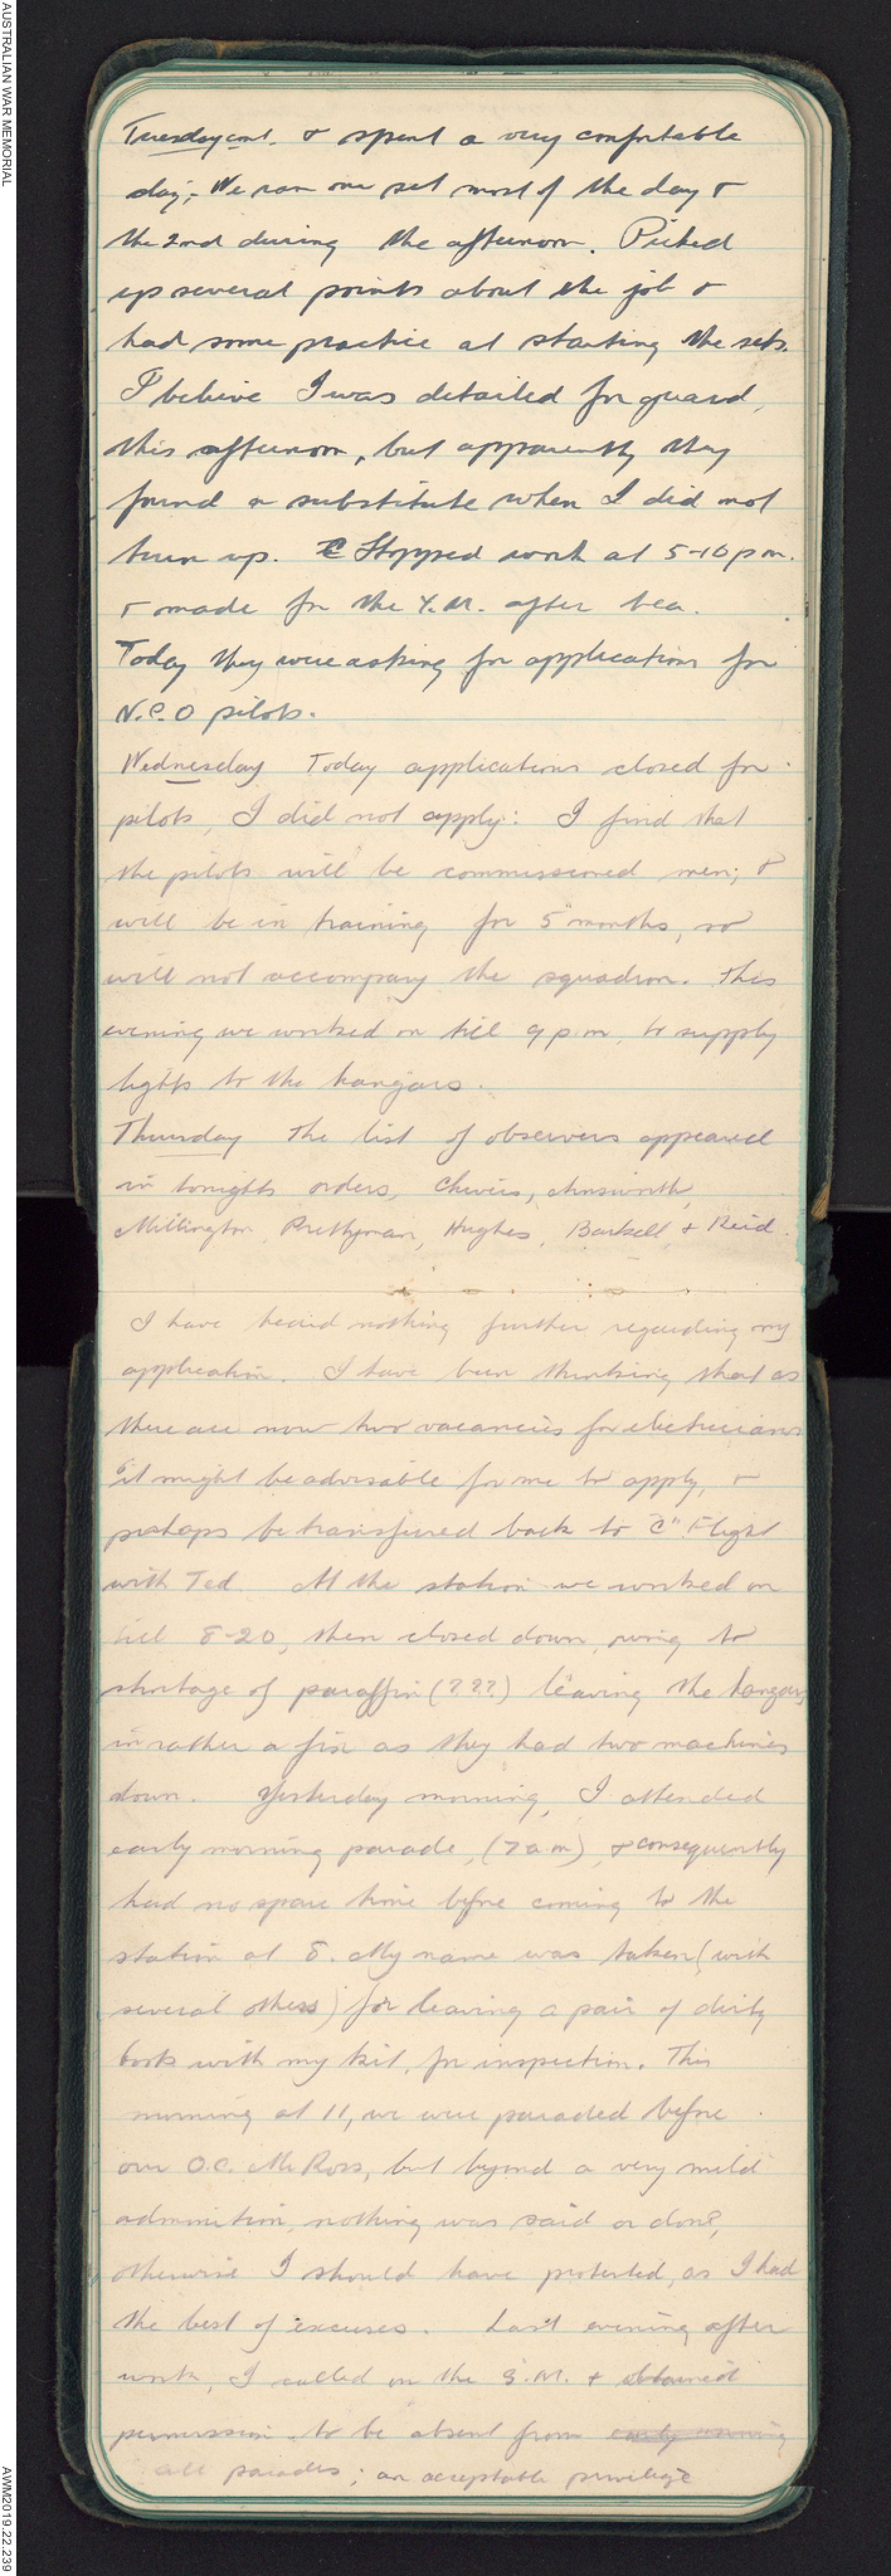 AUSTRALIAN WAR MEMORIAL
Tuesday cont. & spent a very comfortable
day; We ran one set most of the day &
the 2nd during the afternoon. Picked
up several points about the job &
had some practice at starting the sets.
I believe I was detailed for guard,
this afternoon, but apparently they
found a substitute when I did not
turn up. Stopped work at 5-10 pm.
& made for the Y.M. after tea.
Today they were asking for applications for
N.C.O pilots.
Wednesday Today applications closed for
pilots, I did not apply: I find that
the pilots will be commissioned men; &
will be in training for 5 months, so
will not accompany the squadron. This
evening we worked on till 9 p.m. to supply
lights to the hangars.
Thursday The list of observers appeared
in tonights orders, Cheviis, Ainsworth,
Millington, Prettyman, Hughes, Barkell & Reid.
I have heard nothing further regarding my
application. I have been thinking that as
there are now two vacancies for electricians
it might be advisable for me to apply, &
perhaps be transferred back to "C" Flight
with Ted. At the station we worked on
till 8-20, then closed down, owing to
shortage of paraffin (???) leaving the hangars
in rather a fix as they had two machines
down. Yesterday morning, I attended
early morning parade, (7 a.m), & consequently
had no spare time before coming to the
station at 8. My name was taken (with
several others) for leaving a pair of dirty
boots with my kit, for inspection. This
morning at 11, we were paraded before
our O.C. Mr Ross, but beyond a very mild
admonition, nothing was said or done,
otherwise I should have protested, as I had
the best of excuses. Last evening after
work, I called on the S.M. & obtained
permission to be absent from early morning
all parades; an acceptable privilege
AWM2019.22.239